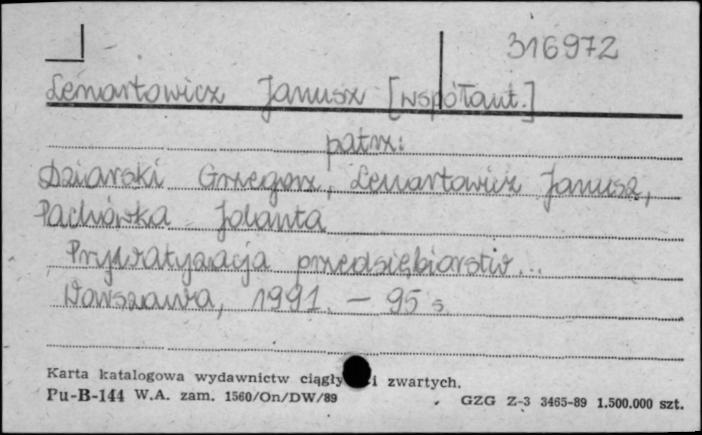 316972
Lenartowicz Janusz [współaut.]
patrz:
Dziarski Grzegorz, Lenartowicz Janusz,
Pachówka Jolanta
Prywatyzacja przedsiębiorstw...
Warszawa, 1991. - 95 s.
Karta katalogowa wydawnictw ciągły i zwartych.
Pu-B-144 W.A. zam. 1560/On/DW/89 GZG Z-3 3465-89 1.500.000 szt.